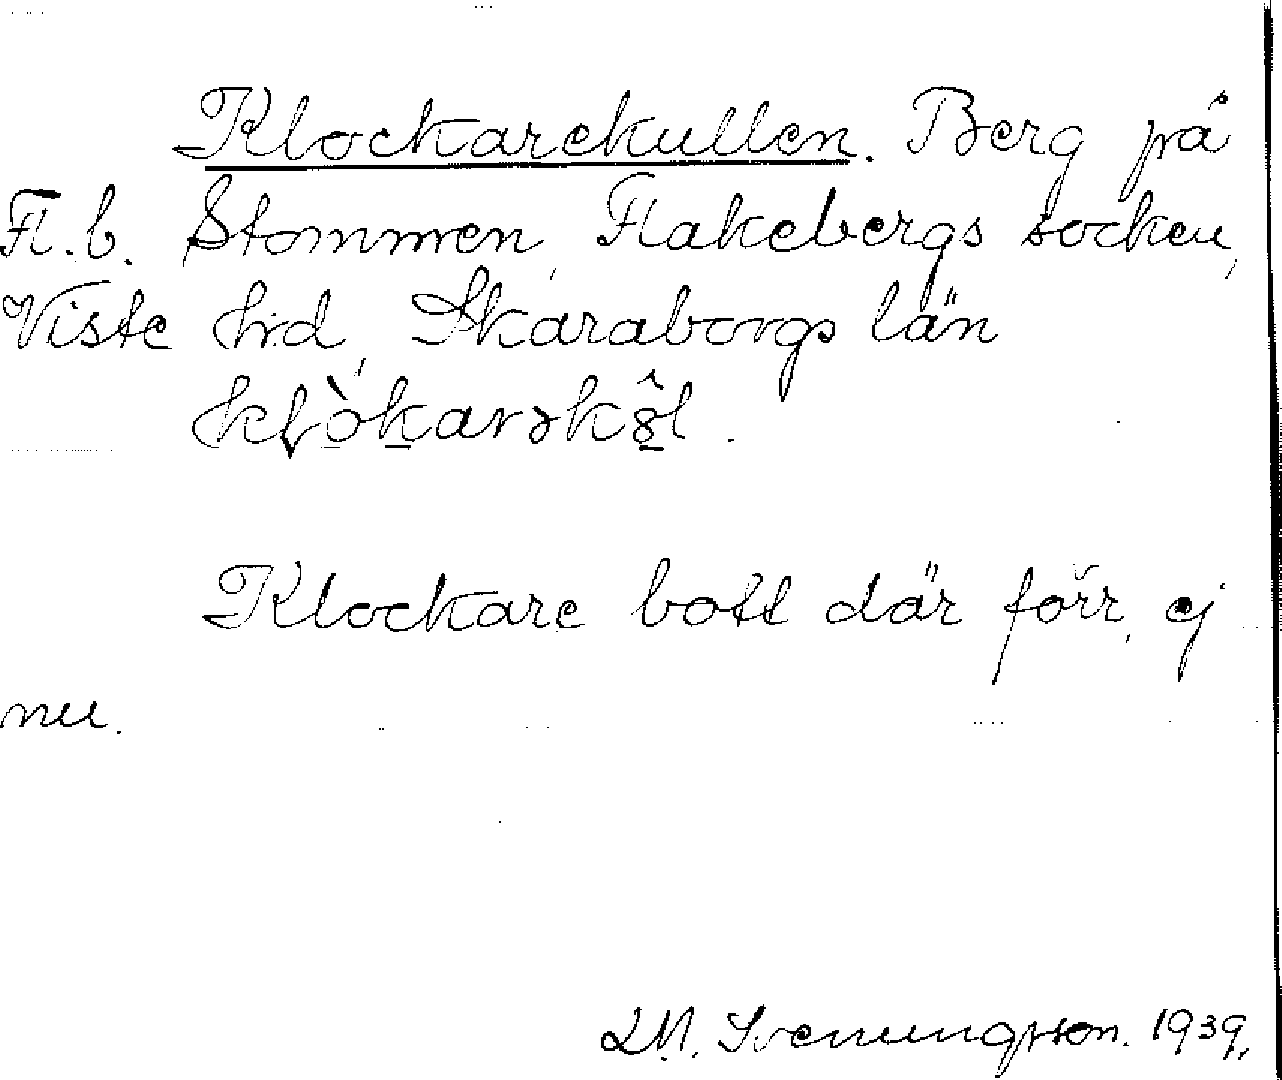 Klockarekullen. Berg på
Fl. b. Stommen, Flakebergs socken,
Viste hd, Skaraborgs län
Klockare bott där förr, ej
nu.
Svenungsson. 1939.